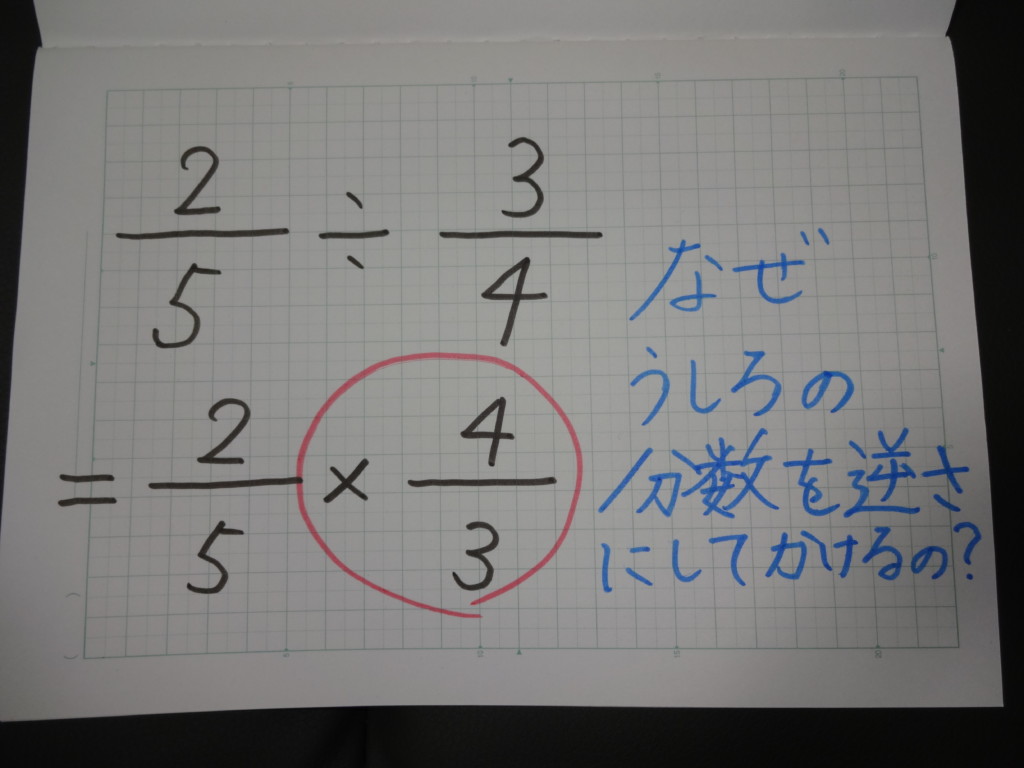 2/5 ÷ 3/4
= 2/5 × 4/3
なぜ
うしろの
分数を逆さ
にしてかけるの?